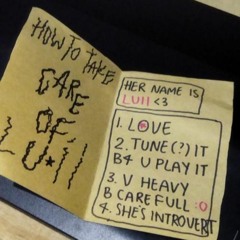 HOW TO TAKE
CARE
OF
LU*II
HER NAME IS
LUII <3
1. LOVE
2. TUNE(?) IT
B4 U PLAY IT
3. V HEAVY
B CAREFULL :O
4. SHE'S INTROVERT